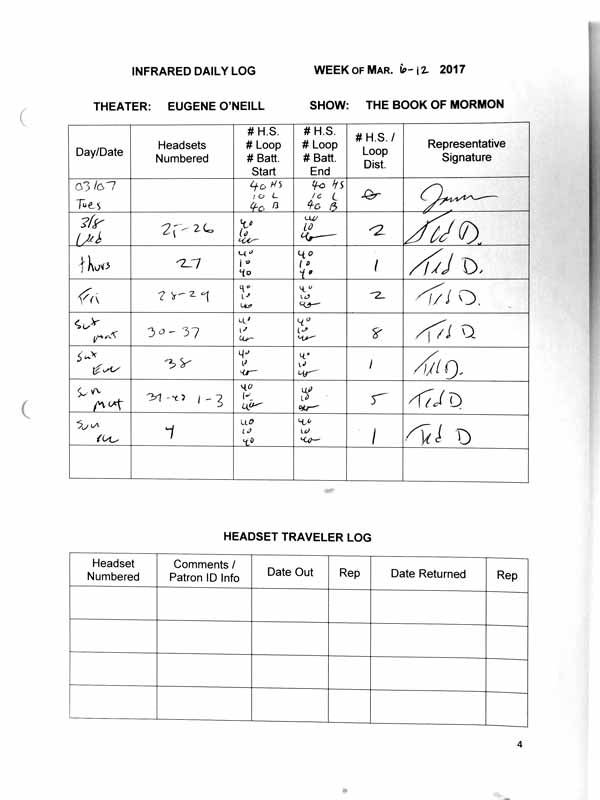 INFRARED DAILY LOG WEEK OF MAR. 6-12 2017
THEATER: EUGENE O'NEILL SHOW: THE BOOK OF MORMON
Day/Date Headsets Numbered # H.S. # Loop # Batt. Start # H.S. # Loop # Batt. End # H.S. / Loop Dist. Representative Signature
03/07 Tues 40 HS 10 L 40 B 40 HS 10 L 40 B 0
3/8 Wed 25-26 40 10 40 40 10 40 2 Ted D.
Thurs 27 40 10 40 40 10 40 1 Ted D.
Fri 28-29 40 10 40 40 10 40 2 Ted D.
Sat mat 30-37 40 10 40 40 10 40 8 Ted D
Sat Eve 38 40 10 40 40 10 40 1 Ted D.
Sun Mat 39-40 1-3 40 10 40 40 10 40 5 Ted D
Sun eve 4 40 10 40 40 10 40 1 Ted D
HEADSET TRAVELER LOG
Headset Numbered Comments / Patron ID Info Date Out Rep Date Returned Rep
4